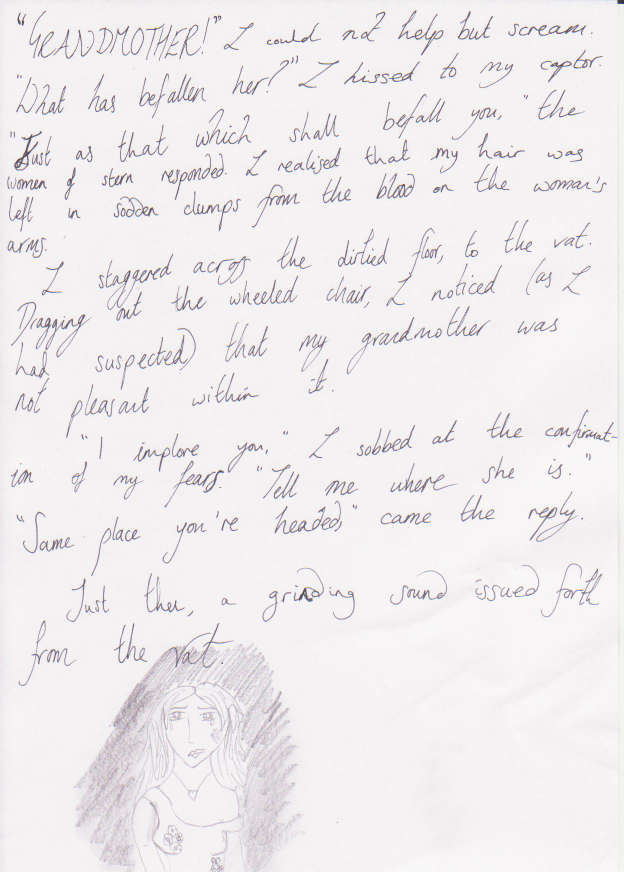 "GRANDMOTHER!" I could not help but scream.
"What has befallen her?" I hissed to my captor.
"Just as that which shall befall you," the
women of stern responded. I realised that my hair was
left in sodden clumps from the blood on the woman's
arms.
I staggered across the dirtied floor, to the vat.
Dragging out the wheeled chair, I noticed (as I
had suspected) that my grandmother was
not pleasant within it.
"I implore you," I sobbed at the confirmat-
ion of my fears. "Tell me where she is."
"Same place you're headed," came the reply.
Just then, a grinding sound issued forth
from the vat.